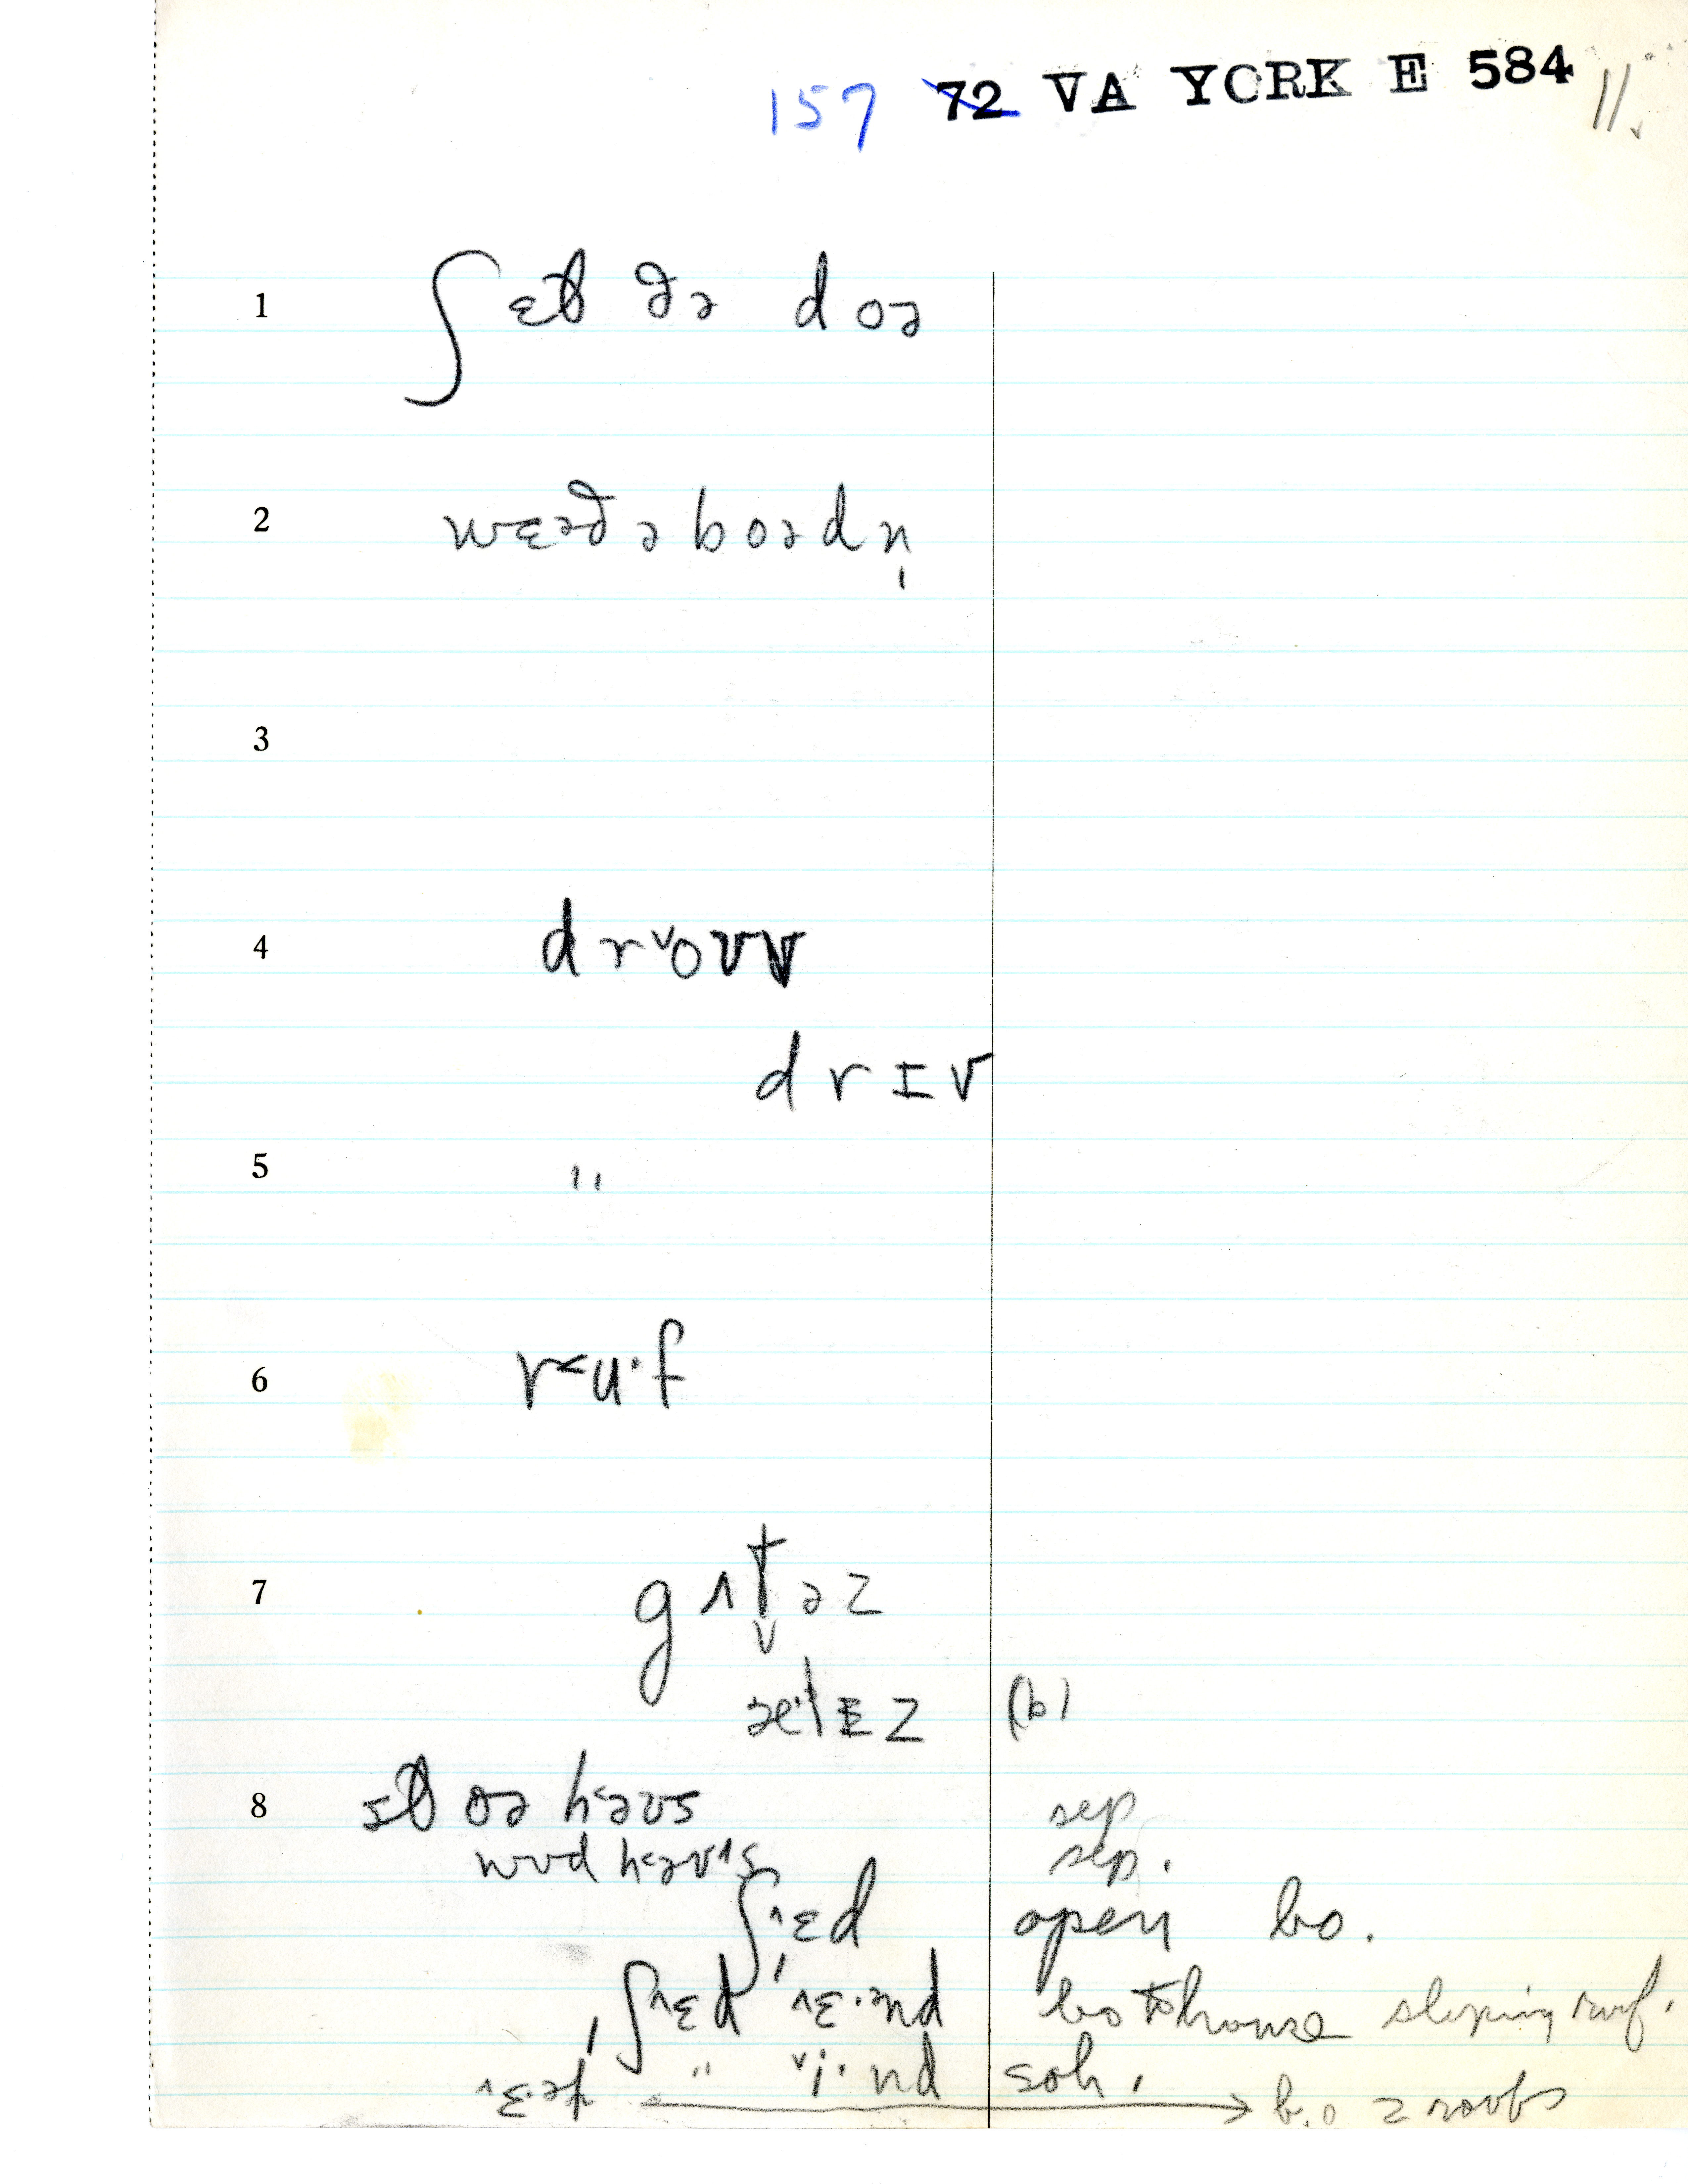 157 72 VA YORK E 584 11.
1 ʃɛt ðə doə
2 wɛəðəboədn̩
3
4 drᵛoʊv
drɪv
5 "
6 r˂u·f
7 gʌt̬əz
(b)
8 oə h˂əʊs sep
wʊdh˂əʊ˄s sep.
ʃ˄ɛd open bo.
ʃ˄ɛd bo to house sloping roof.
" ˅i·nd soh.
→ b.o 2 roofs